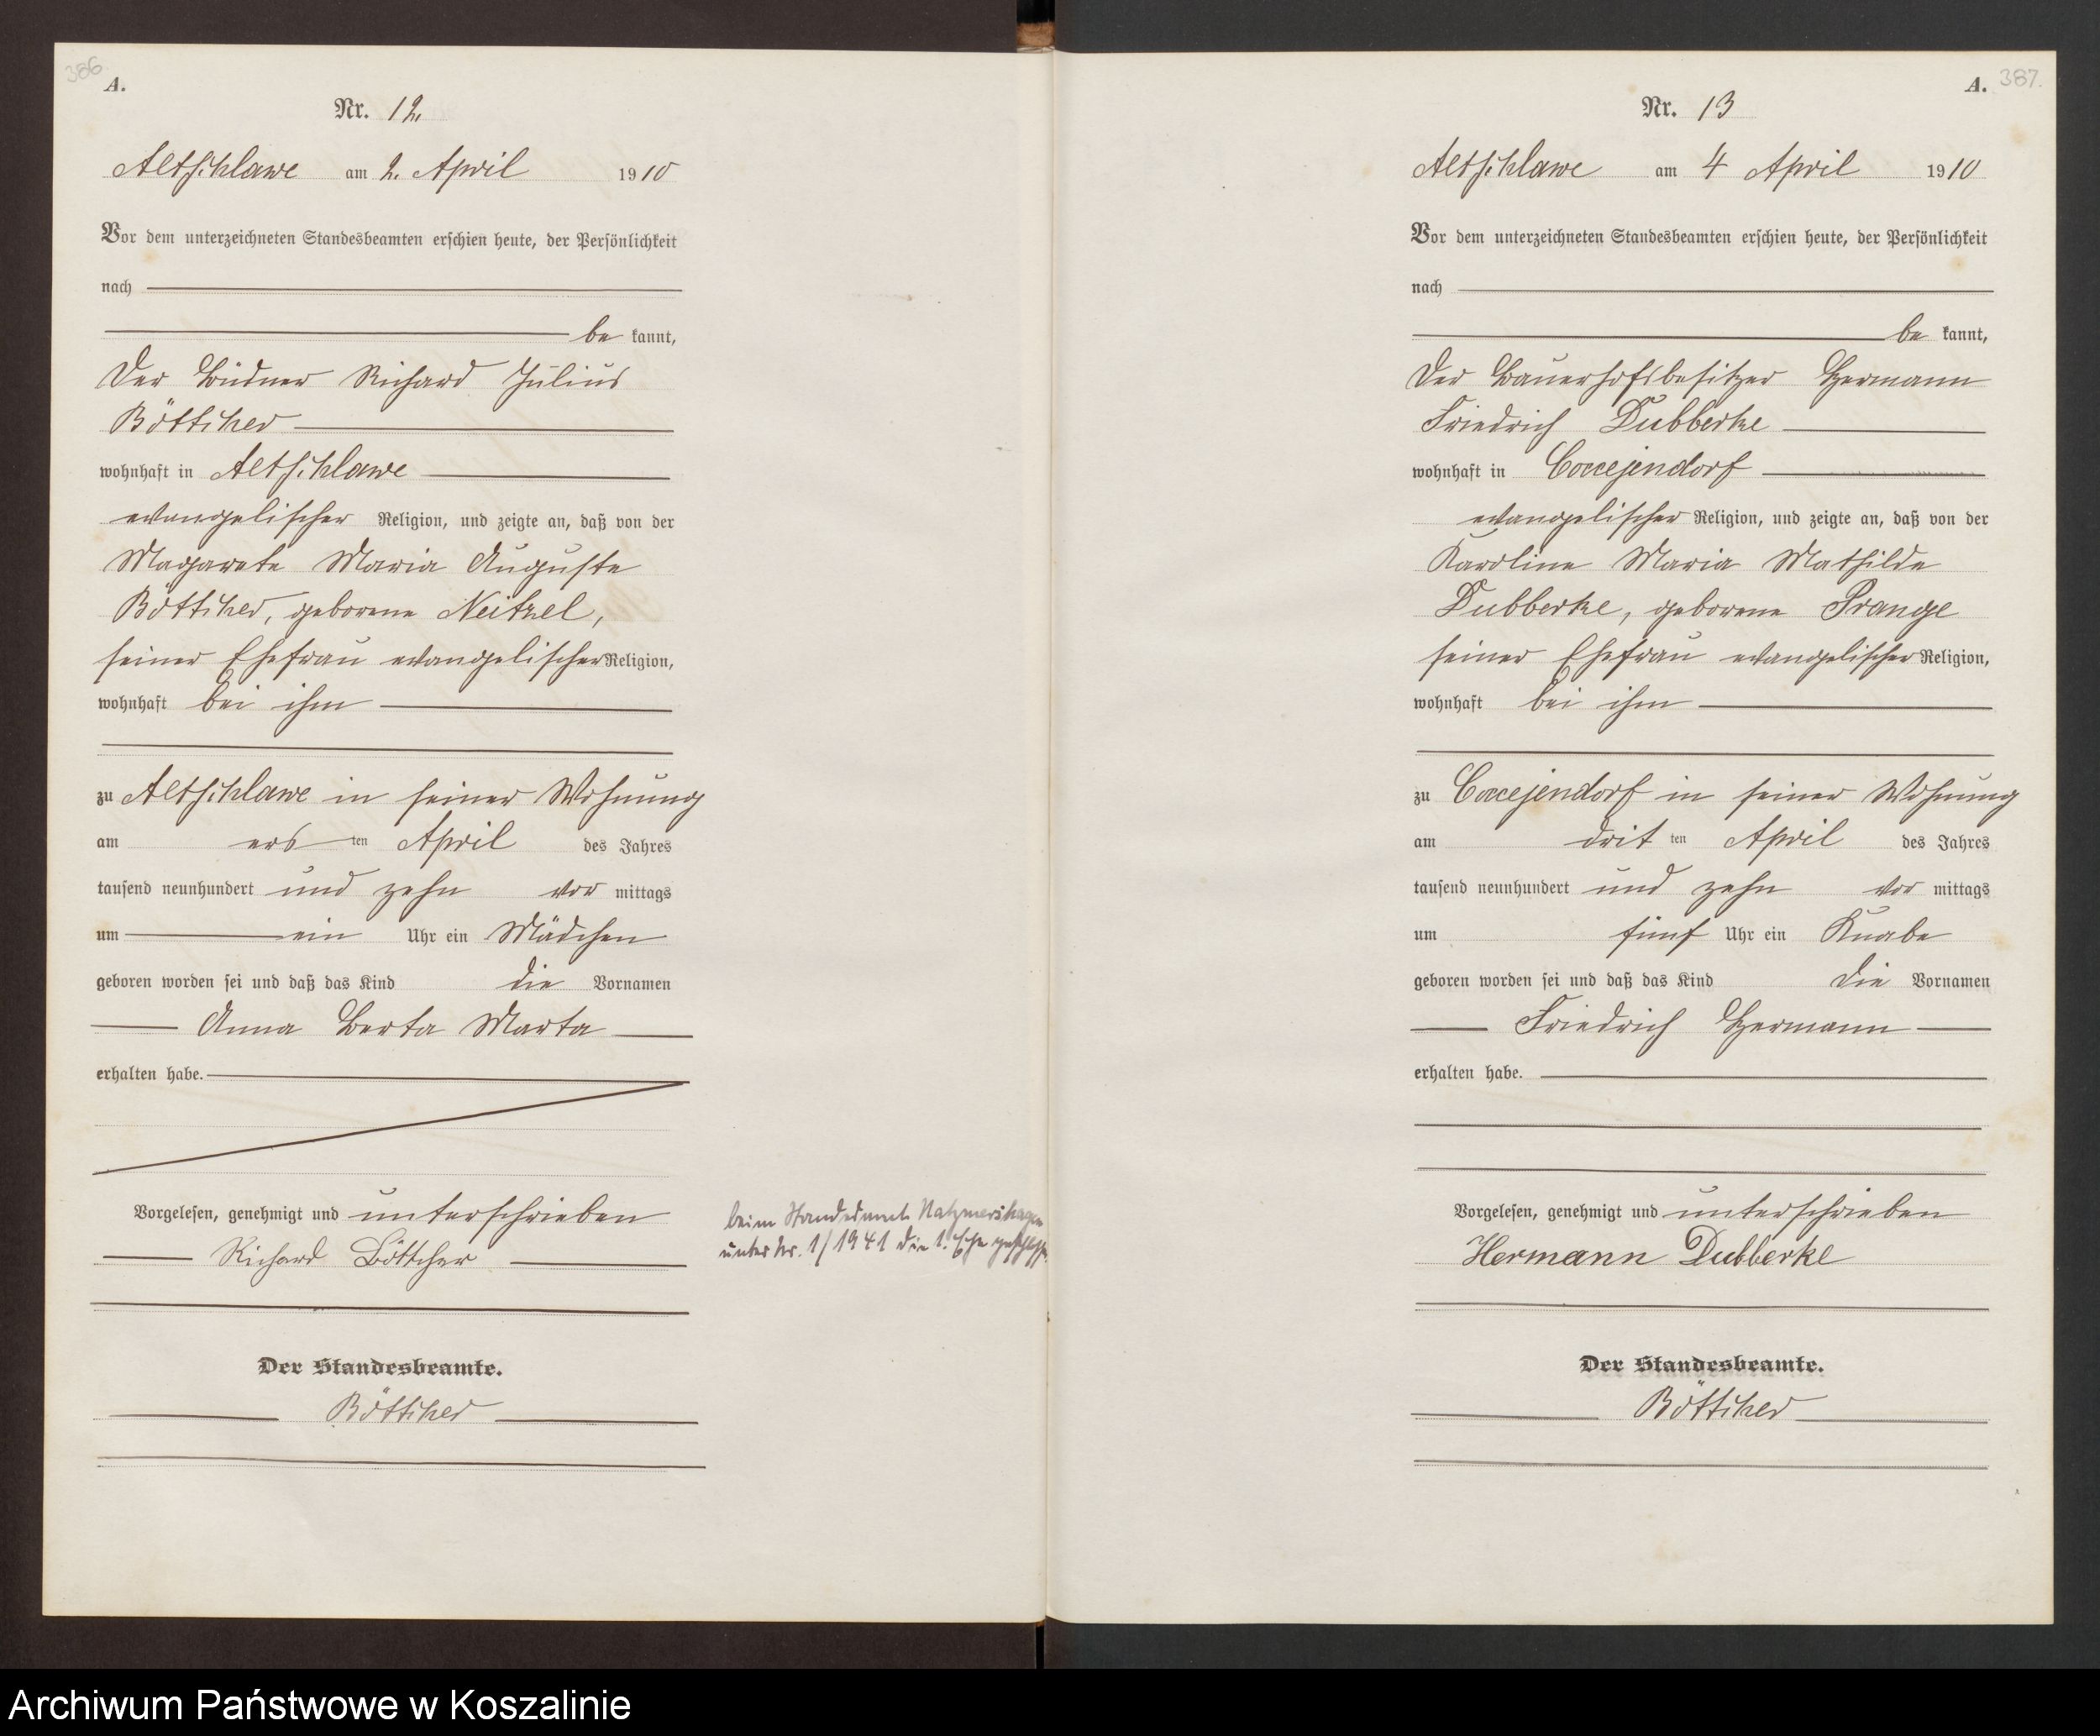 386.
A.
Nr. 12.
Altschlawe am 2. April 1910
Vor dem unterzeichneten Standesbeamten erschien heute, der Persönlichkeit
nach
be kannt,
der Büdner Richard Julius
Böttcher
wohnhaft in Altschlawe
evangelischer Religion, und zeigte an, daß von der
Magarete Maria Auguste
Böttcher, geborene Neitzel,
seiner Ehefrau evangelischer Religion,
wohnhaft bei ihm
zu Altschlawe in seiner Wohnung
am ers ten April des Jahres
tausend neunhundert und zehn vor mittags
um ein Uhr ein Mädchen
geboren worden sei und daß das Kind die Vornamen
Anna Berta Marta
erhalten habe.
Vorgelesen, genehmigt und unterschrieben
Richard Böttcher
Der Standesbeamte.
Böttcher
beim Standesamt Natzmershagen
unter Nr. 1/1941 die 1. Ehe geschlossen.
A. 387.
Nr. 13
Altschlawe am 4 April 1910
Vor dem unterzeichneten Standesbeamten erschien heute, der Persönlichkeit
nach
be kannt,
der Bauerhofsbesitzer Hermann
Friedrich Dubberke
wohnhaft in Coccejendorf
evangelischer Religion, und zeigte an, daß von der
Karoline Maria Mathilde
Dubberke, geborene Prange
seiner Ehefrau evangelischer Religion,
wohnhaft bei ihm
zu Coccejendorf in seiner Wohnung
am drit ten April des Jahres
tausend neunhundert und zehn vor mittags
um fünf Uhr ein Knabe
geboren worden sei und daß das Kind die Vornamen
Friedrich Hermann
erhalten habe.
Vorgelesen, genehmigt und unterschrieben
Hermann Dubberke
Der Standesbeamte.
Böttcher
Archiwum Państwowe w Koszalinie